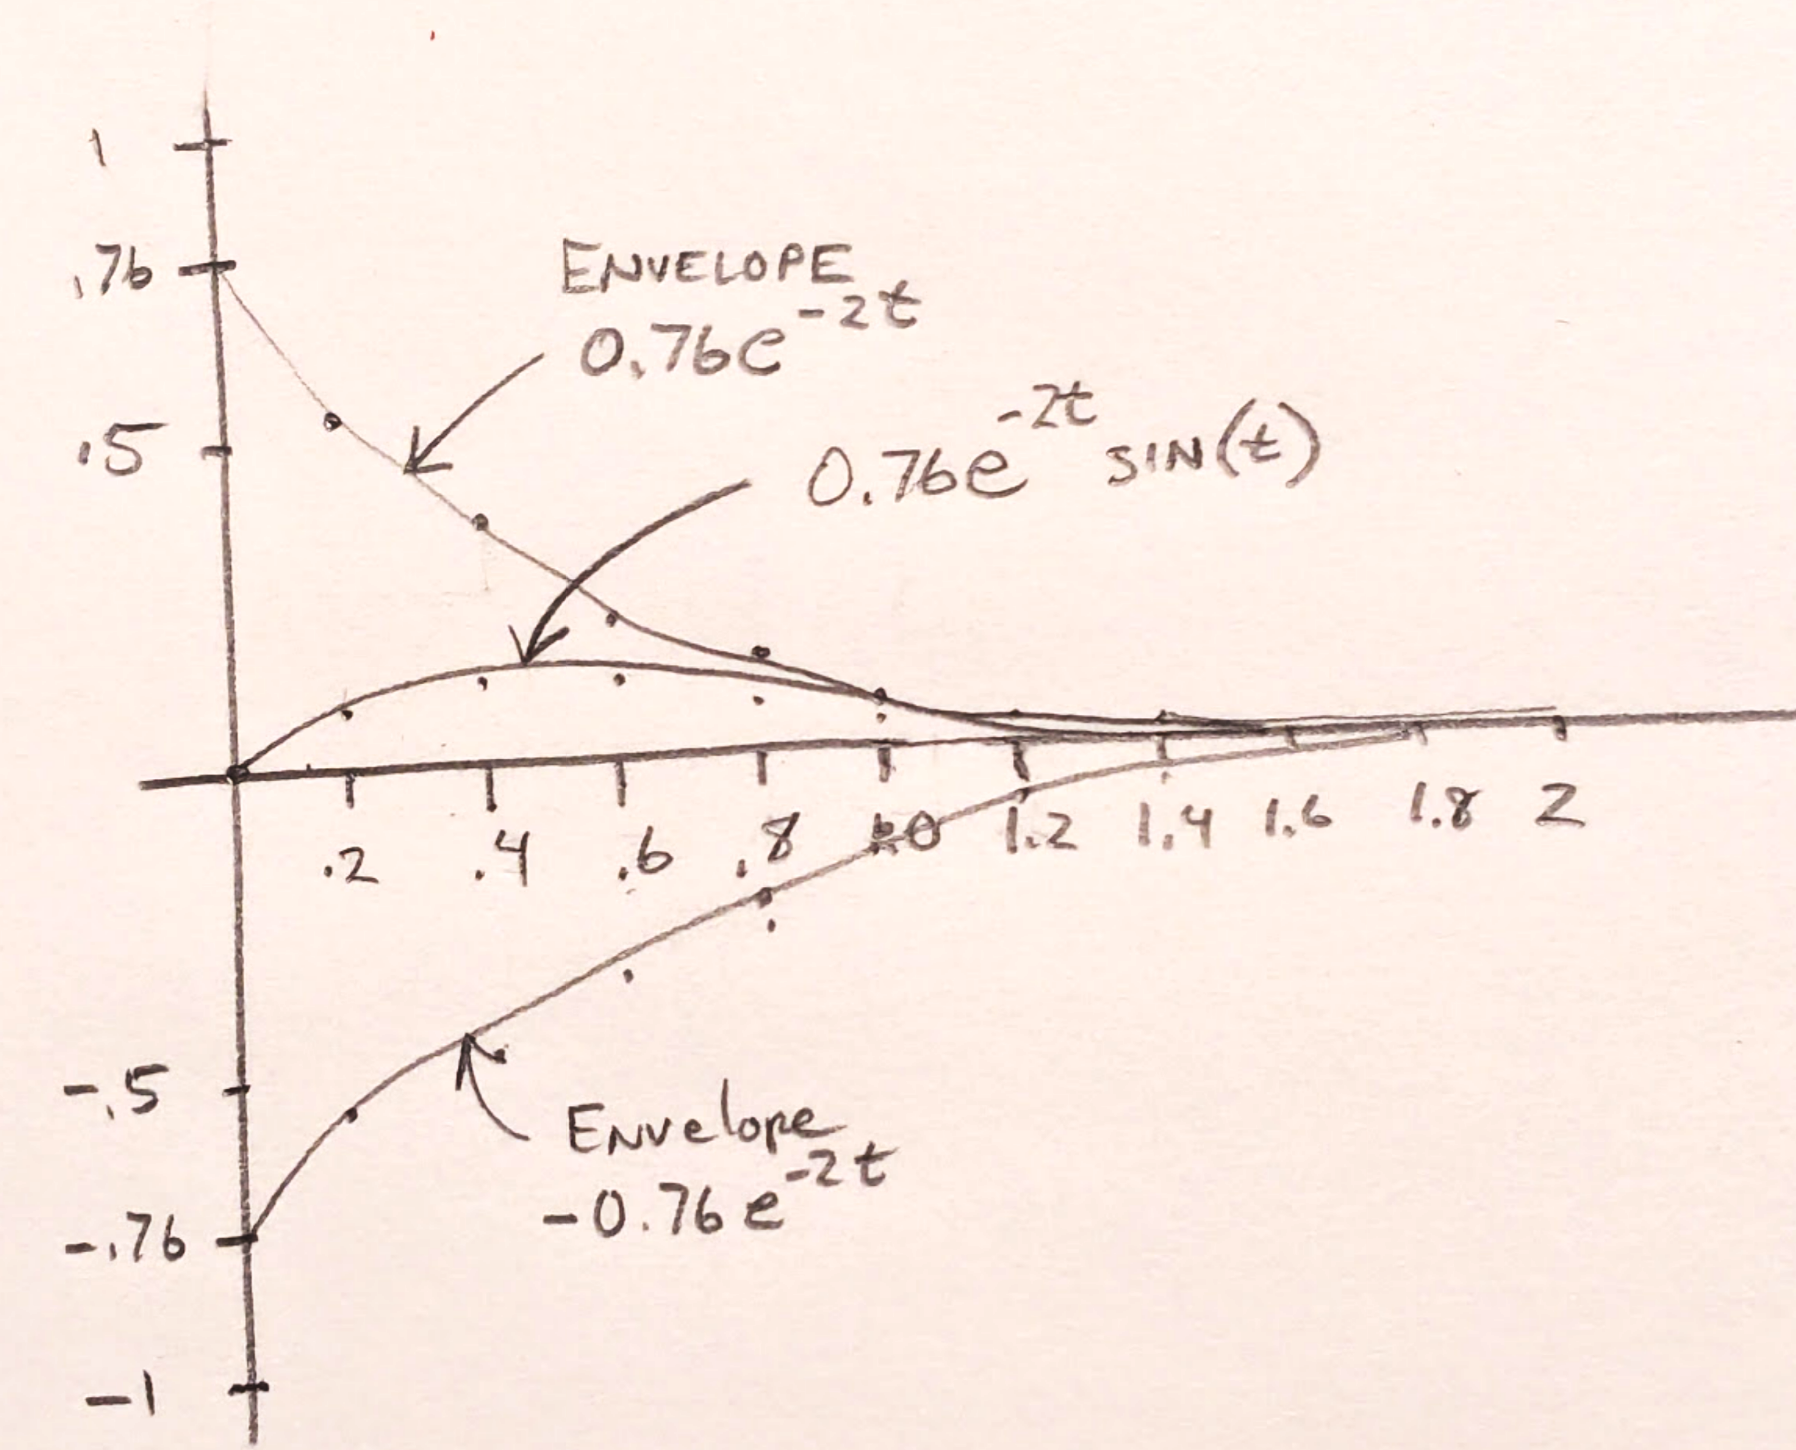 1
.76
ENVELOPE
0.76e^-2t
.5
0.76e^-2t SIN(t)
.2 .4 .6 .8 1.0 1.2 1.4 1.6 1.8 2
-.5
Envelope
-0.76e^-2t
-.76
-1